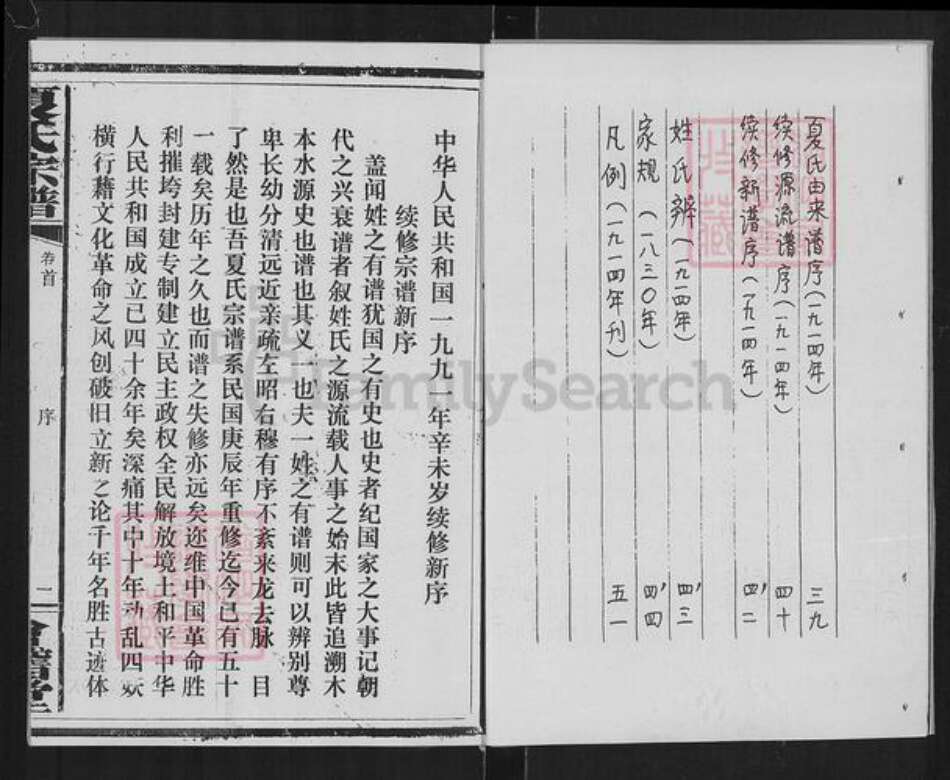 夏氏由来谱序(一九一四年) 三九
续修源流谱序(一九一四年) 四十
续修新谱序(一九一四年) 四二
姓氏辨(一九一四年) 四三
家规(一八三〇年) 四四
凡例(一九一四年刊) 五一
中华人民共和国一九九 年辛未岁续修新序
续修宗谱新序
盖闻姓之有谱犹国之有史也史者纪国家之大事记朝
代之兴衰谱者叙姓氏之源流载人事之始末此皆追溯木
本水源史也谱也其义一也夫一姓之有谱则可以辨别尊
卑长幼分清远近亲疏左昭右穆有序不紊来龙去脉 目
了然是也吾夏氏宗谱系民国庚辰年重修迄今已有五十
一载矣历年之久也而谱之失修亦远矣迩维中国革命胜
利摧垮封建专制建立民主政权全民解放境土和平中华
人民共和国成立已四十余年矣深痛其中十年动乱四妖
横行藉文化革命之风创破旧立新之论千年名胜古迹体
夏氏宗谱
卷首
序
二
会稽堂
FamilySearch